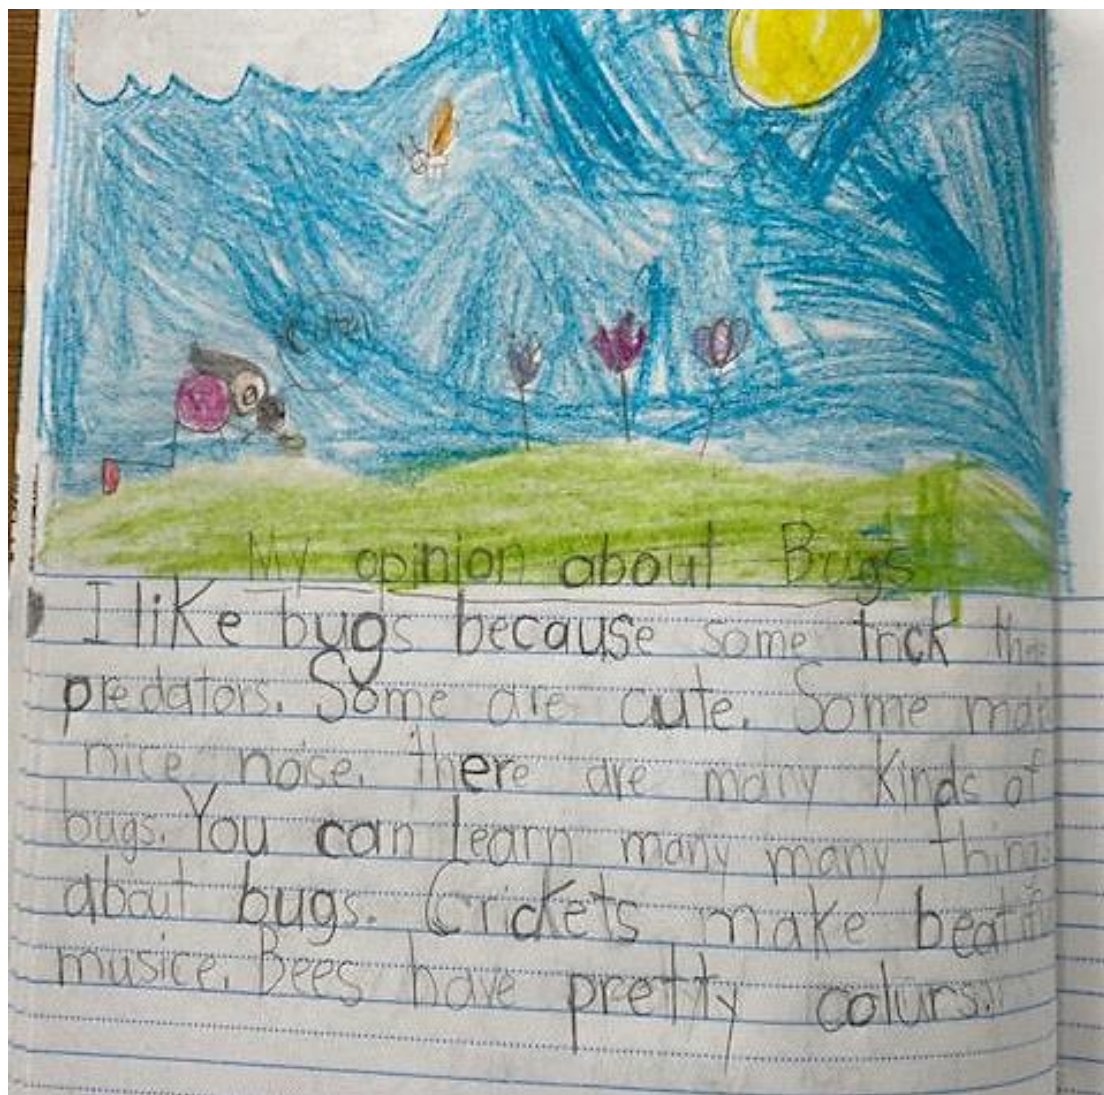 My opinion about Bugs
I like bugs because some trick
predators. Some are cute. Some
nice noise. there are many kinds of
bugs. You can learn many many
about bugs. Crickets make
musice. Bees have pretty colurs.